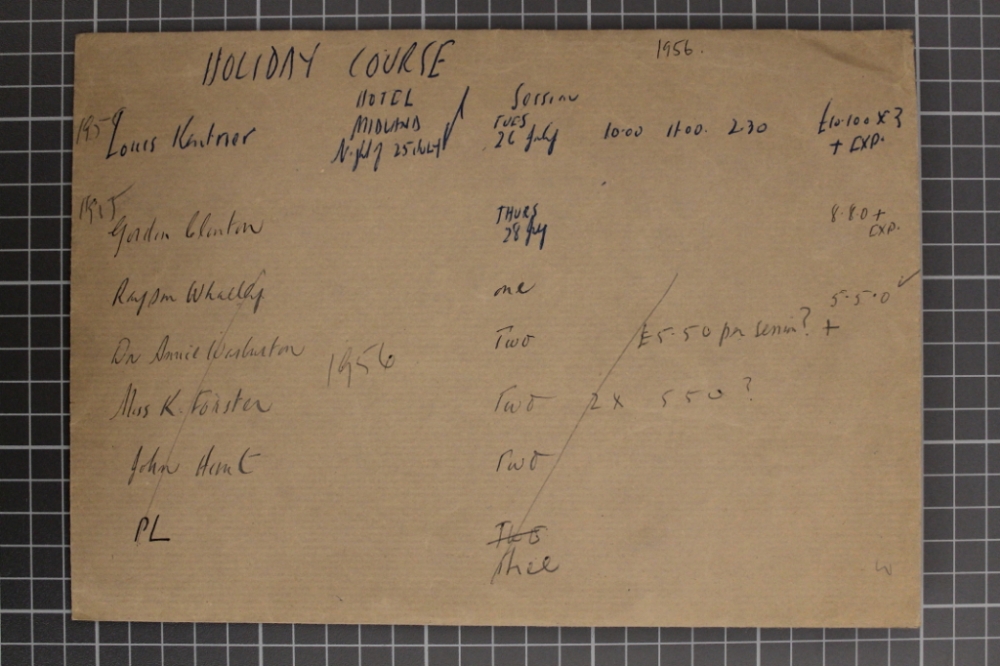 HOLIDAY COURSE 1956.
HOTEL Session
1959 Louis Kentner MIDLAND TUES 10.00 11.00. 2.30 £10.10.0 x 3
Night 25 July 26 July + EXP.
1955 THURS 8.8.0 +
Gordon Clinton 28 July EXP.
Raypon Whalley one 5.5.0 ✓
Dr Annie Warburton Two £5.5.0 per session? +
1956
Miss K. Forster Two 2 x 5 5 0 ?
John Hunt Two
PL Two
three